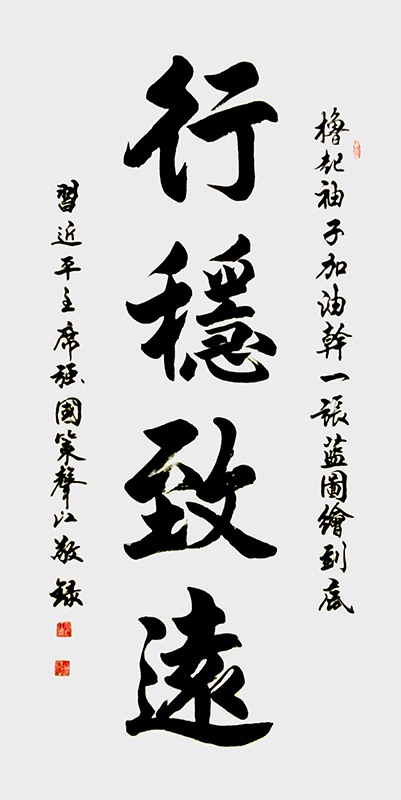 櫓起袖子加油幹一張藍圖繪到底
行穩致遠
習近平主席強國策聲江敬録